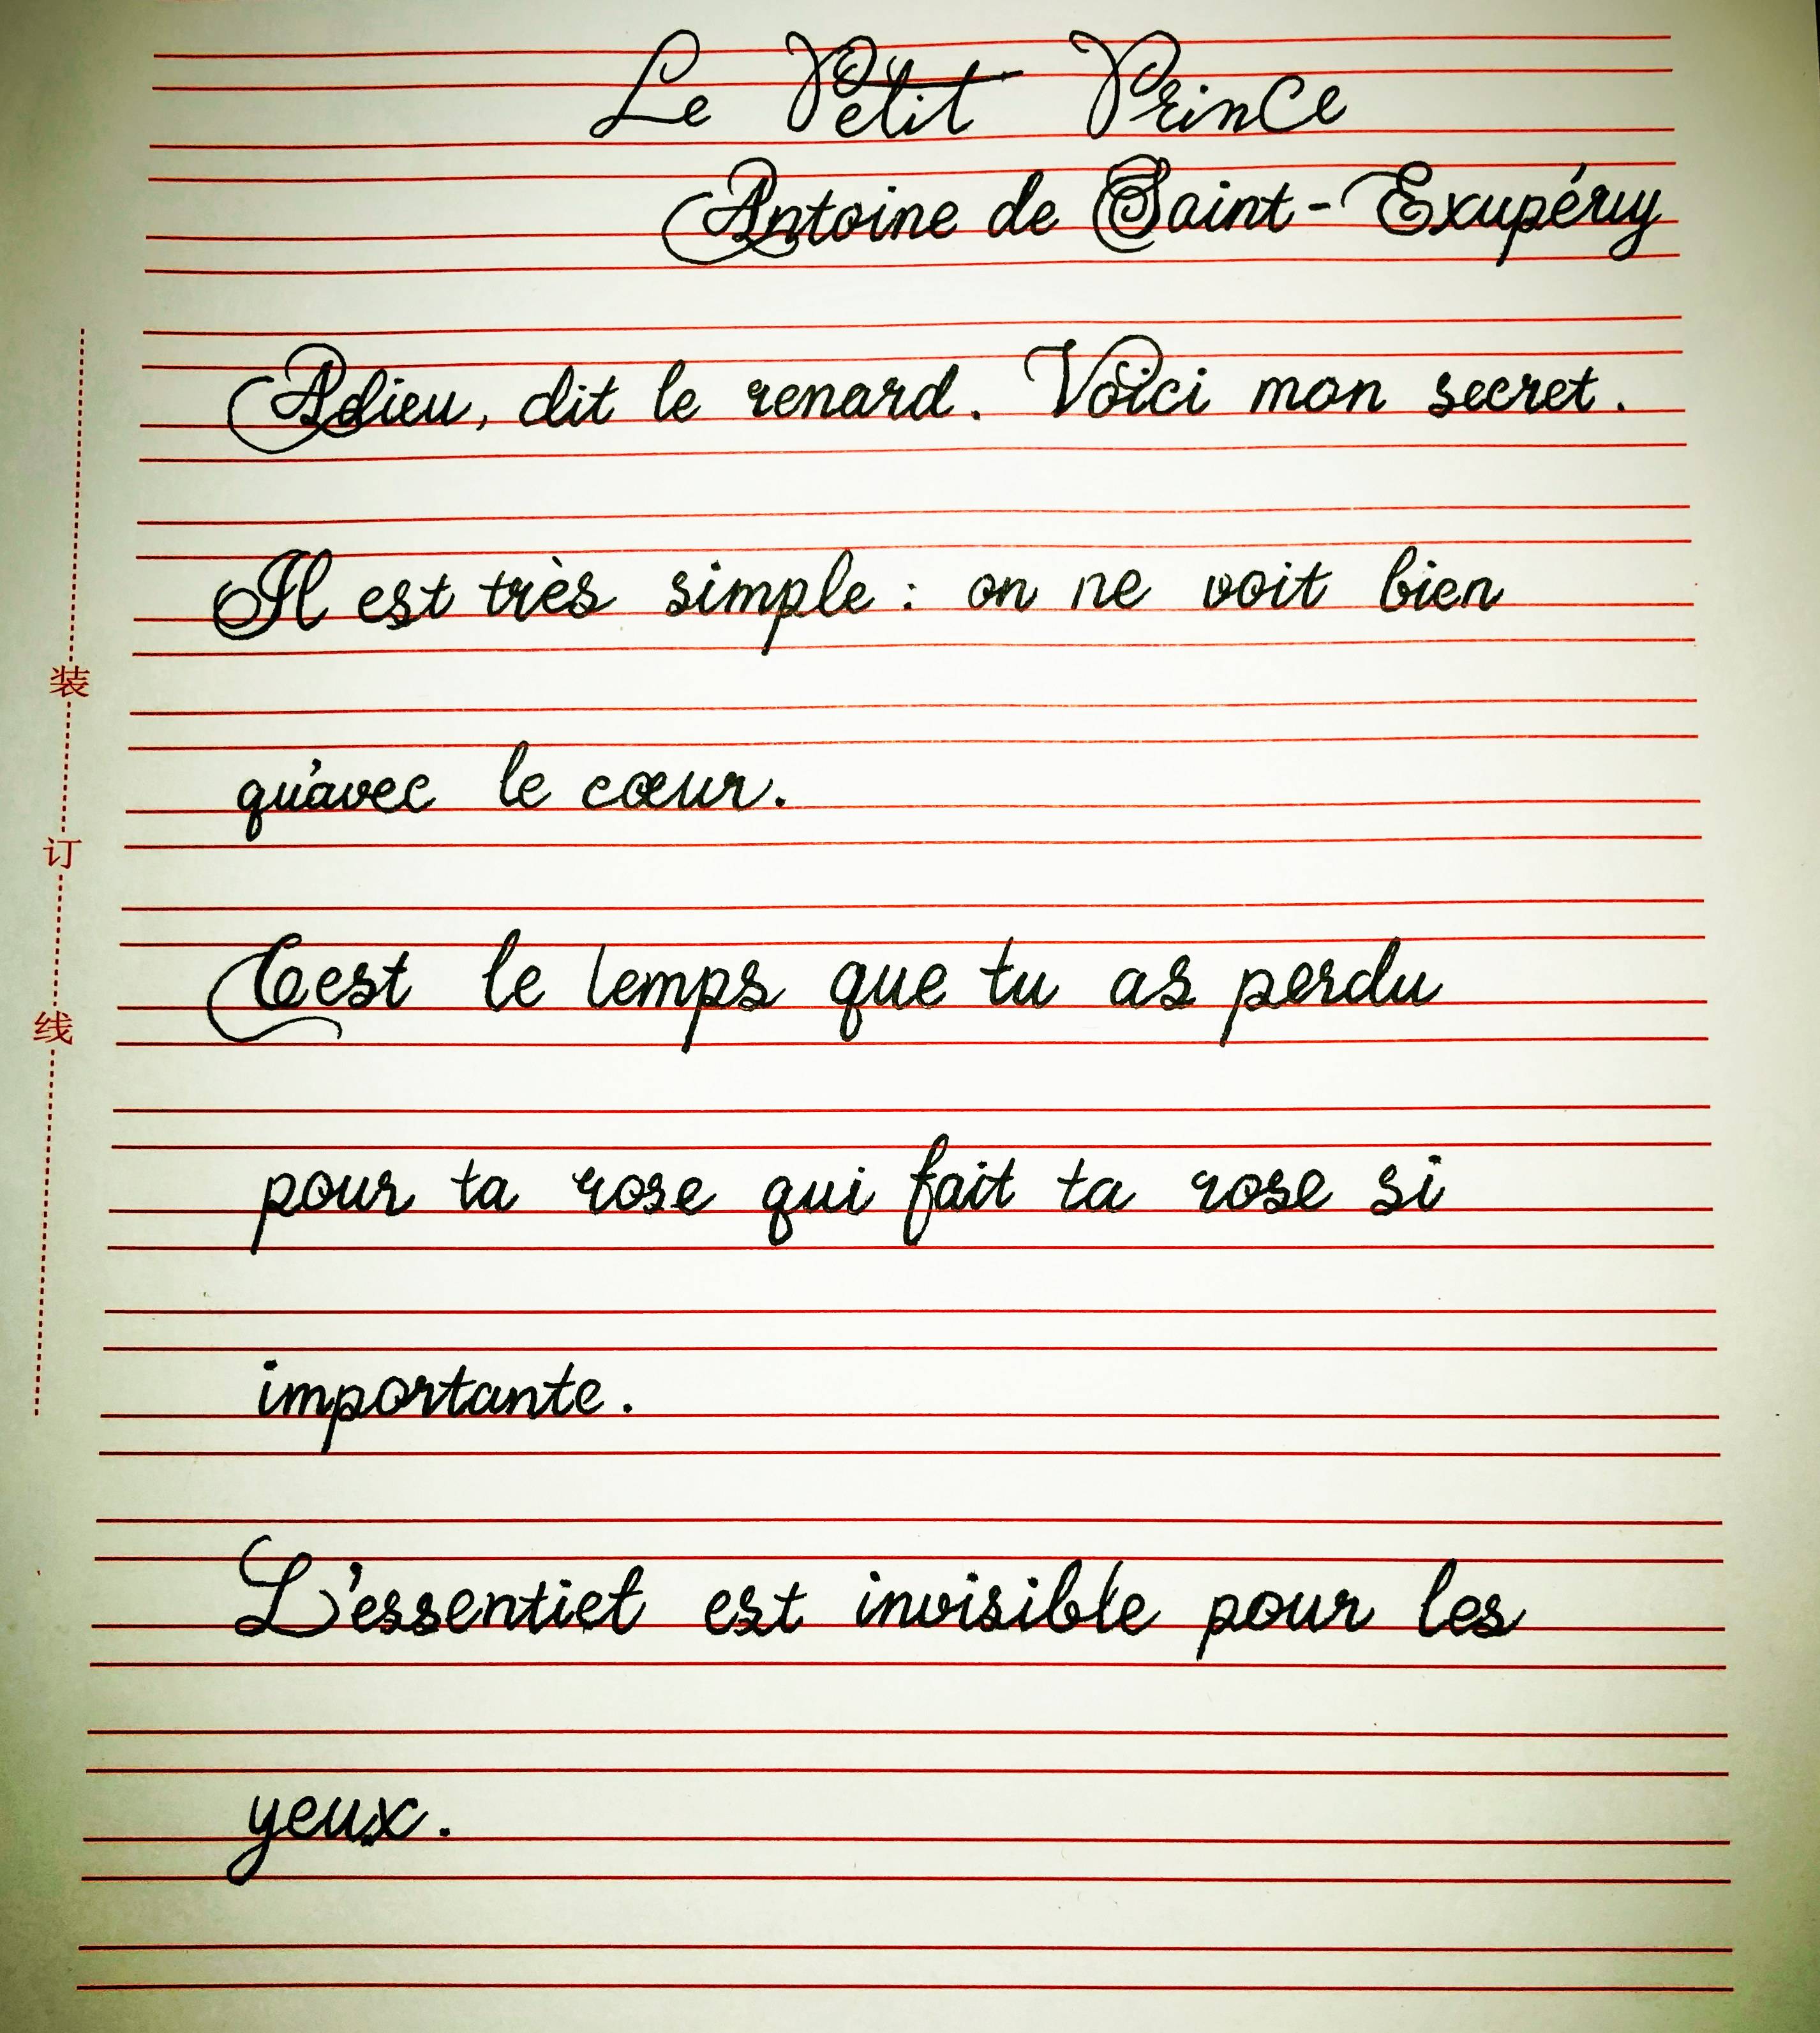 Le Petit Prince
Antoine de Saint-Exupéry
Adieu, dit le renard. Voici mon secret.
Il est très simple : on ne voit bien
qu'avec le cœur.
C'est le temps que tu as perdu
pour ta rose qui fait ta rose si
importante.
L'essentiel est invisible pour les
yeux.
装
订
线